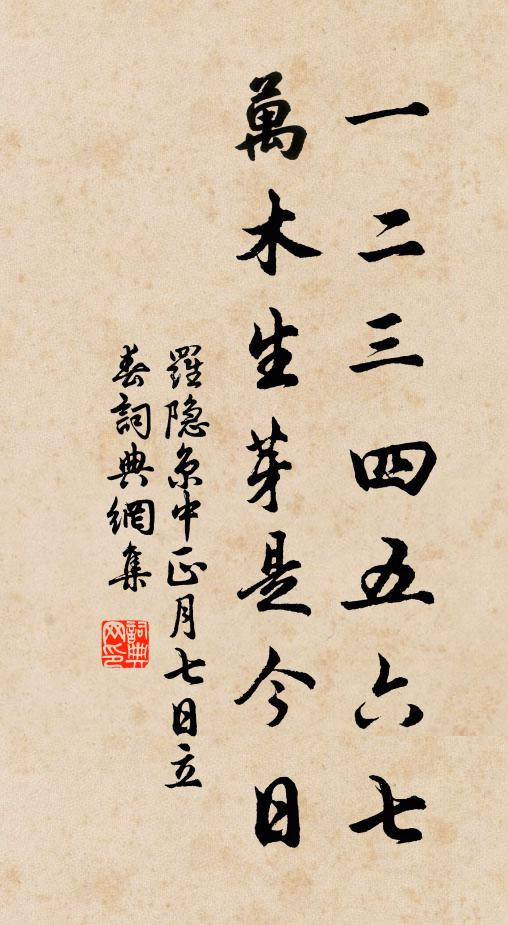 一二三四五六七
萬木生芽是今日
羅隐京中正月七日立
春詞典網集
詞典網印